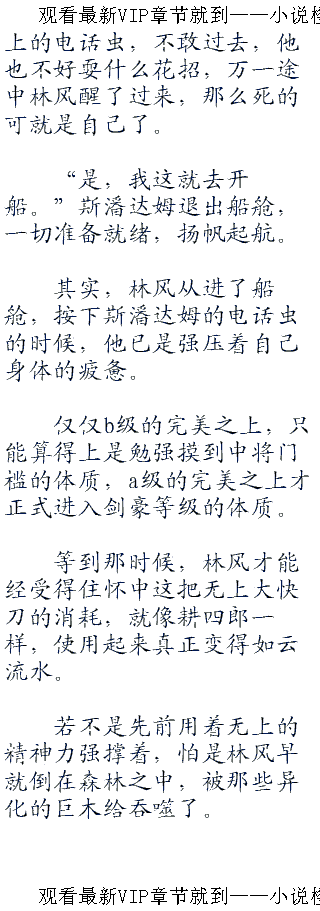 观看最新VIP章节就到——小说检
上的电话虫，不敢过去，他
也不好耍什么花招，万一途
中林风醒了过来，那么死的
可就是自己了。
“是，我这就去开
船。”斯潘达姆退出船舱，
一切准备就绪，扬帆起航。
其实，林风从进了船
舱，按下斯潘达姆的电话虫
的时候，他已是强压着自己
身体的疲惫。
仅仅b级的完美之上，只
能算得上是勉强摸到中将门
槛的体质，a级的完美之上才
正式进入剑豪等级的体质。
等到那时候，林风才能
经受得住怀中这把无上大快
刀的消耗，就像耕四郎一
样，使用起来真正变得如云
流水。
若不是先前用着无上的
精神力强撑着，怕是林风早
就倒在森林之中，被那些异
化的巨木给吞噬了。
观看最新VIP章节就到——小说检